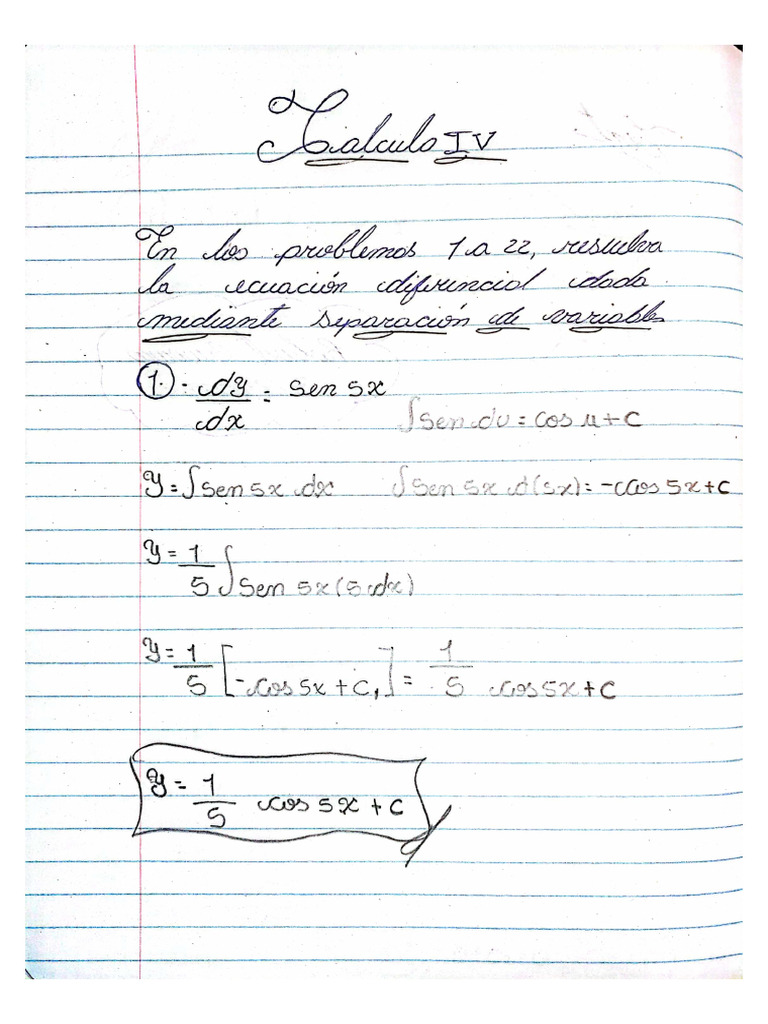 Cálculo IV
En los problemas 1 a 22, resuelva
la ecuación diferencial dada
mediante separación de variables
1.- dy/dx = sen 5x
∫sen du = cos u + c
y = ∫sen 5x dx    ∫sen 5x d(5x) = -cos 5x + c
y = 1/5 ∫sen 5x (5 dx)
y = 1/5 [-cos 5x + c₁] = 1/5 cos 5x + c
y = 1/5 cos 5x + c